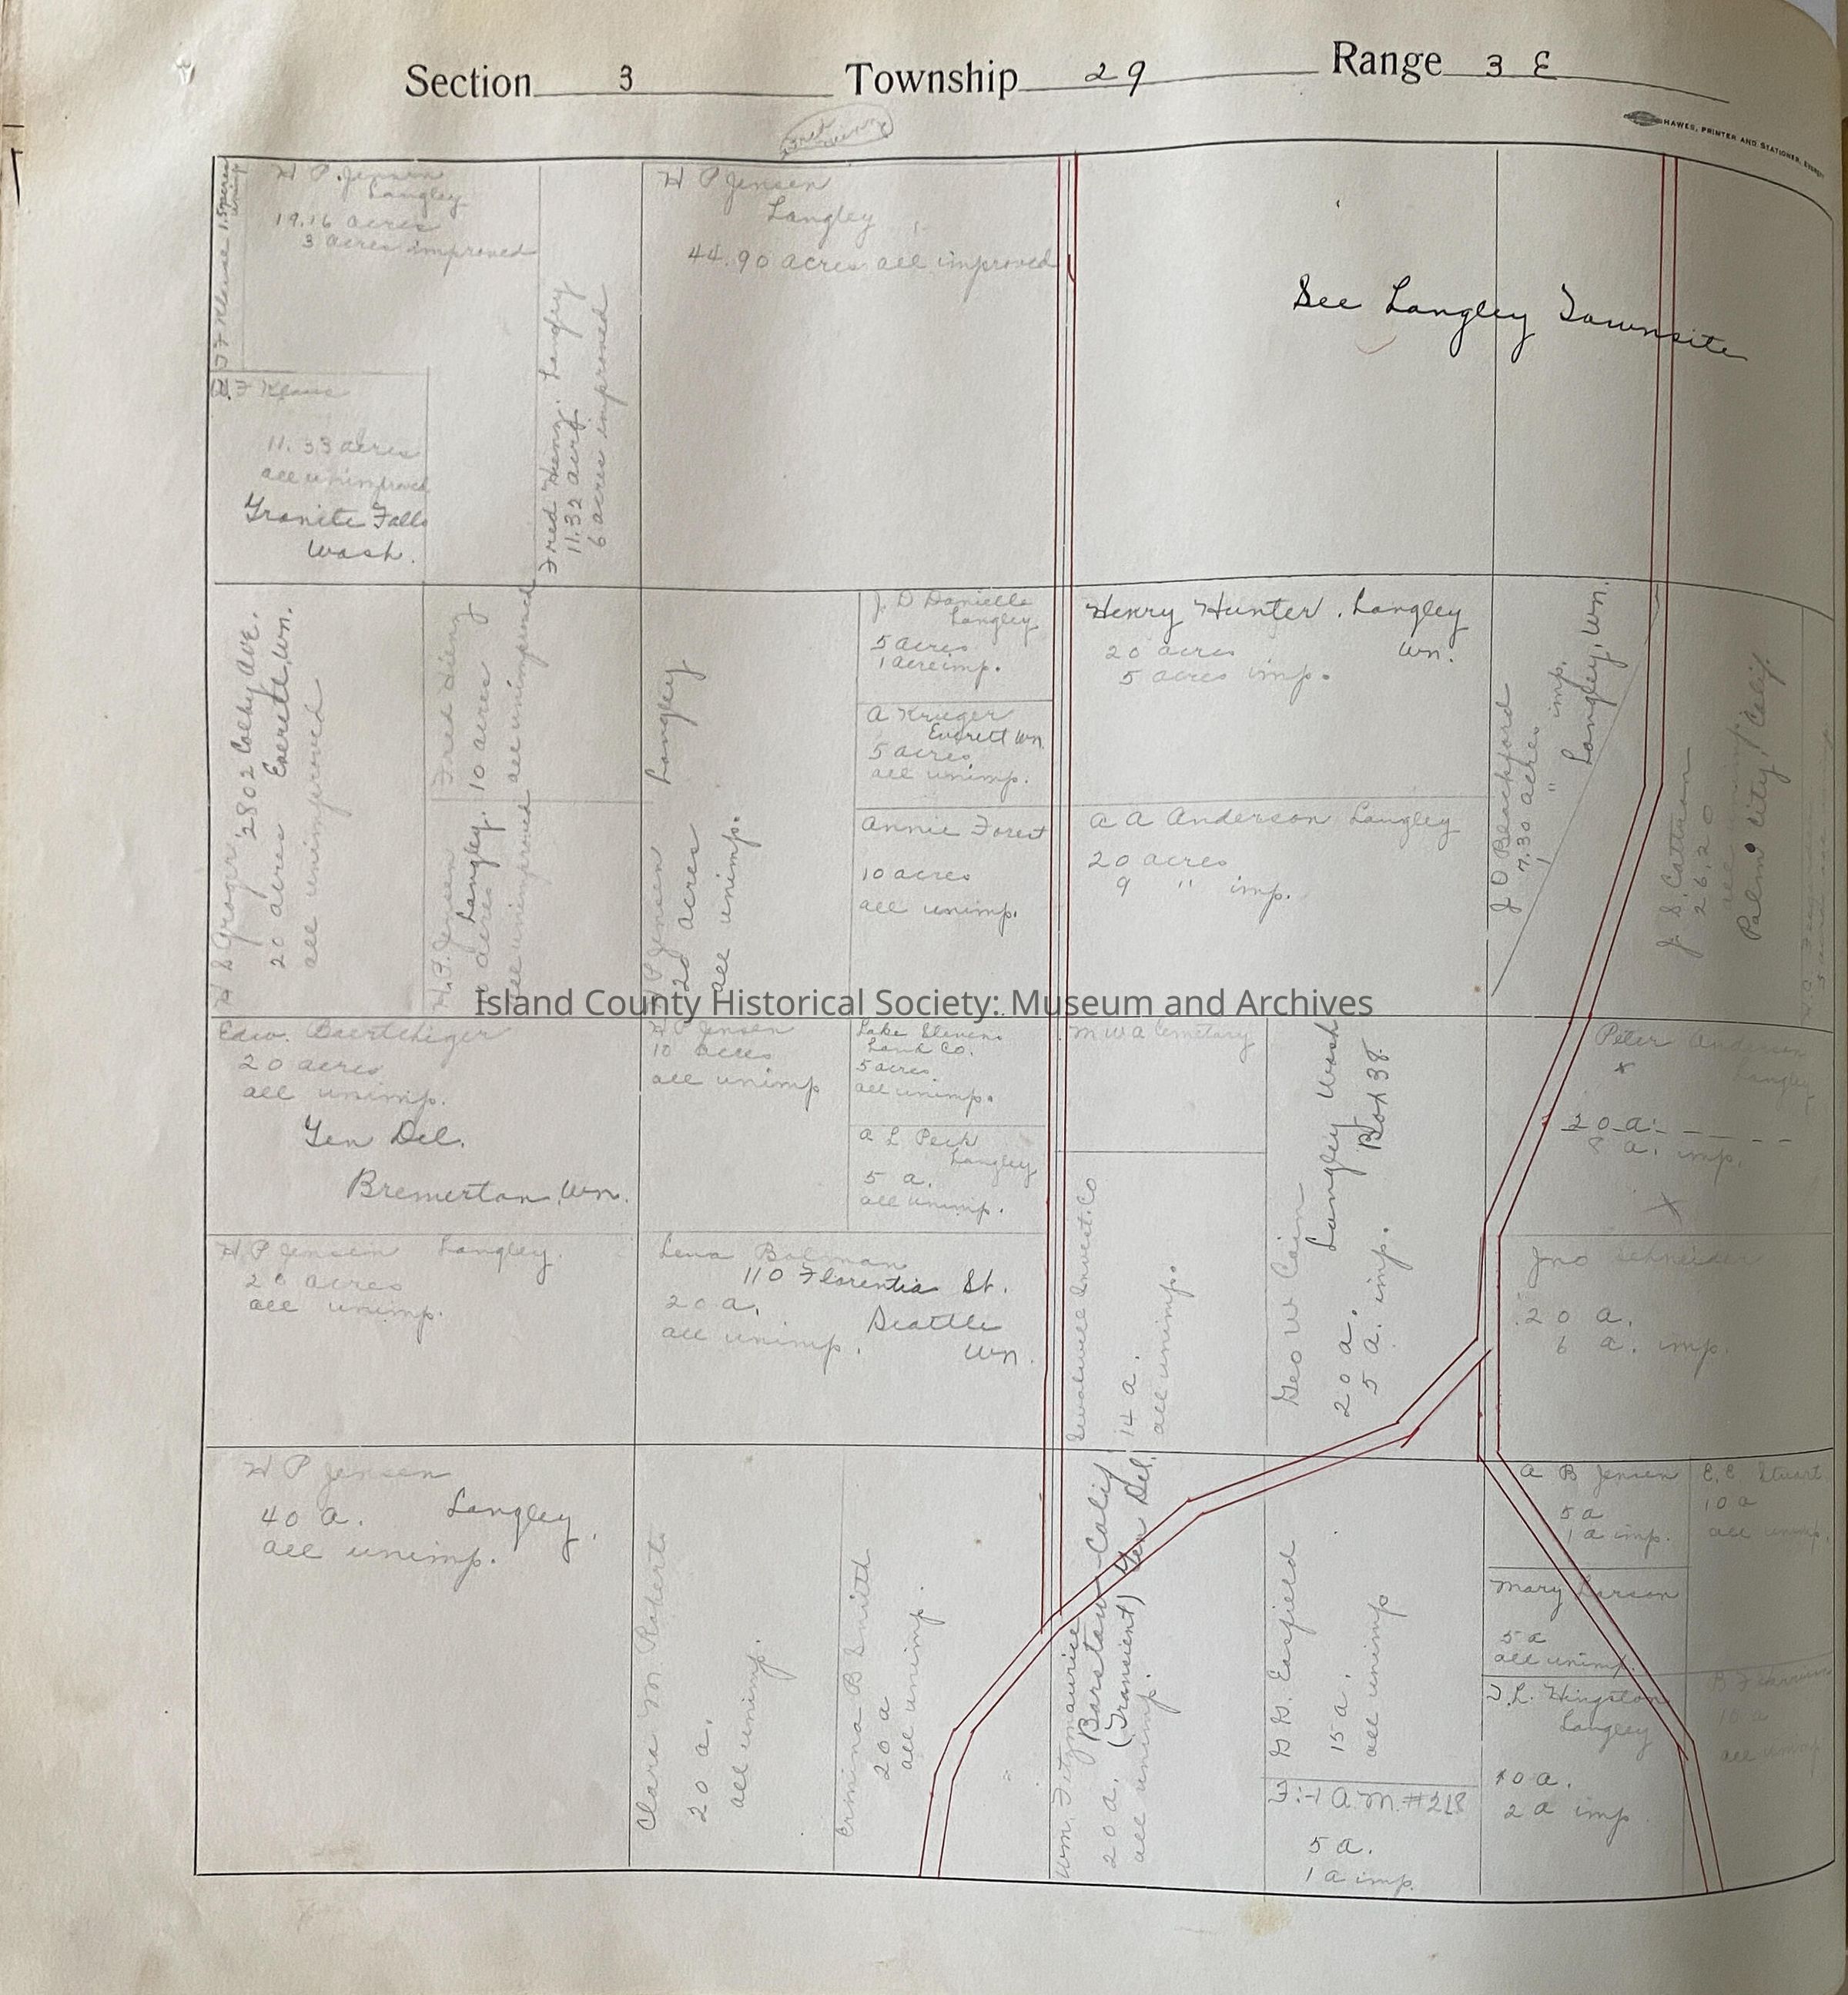 Section 3 Township 29 Range 3 E
HAWES, PRINTER AND STATIONER,
H P. Jensen
Langley
19.16 acres
3 acres improved
H P Jensen
Langley
44.90 acres all improved
See Langley Townsite
11.33 acres
all unimproved
Granite Falls
Wash.
Langley
11.32 acres
6 acres improved
2802 Colby Ave.
20 acres Everett, Wn.
all unimproved
10 acres
all unimproved
Langley.
all unimproved
Langley
P Jensen
20 acres
all unimp.
J. D Daniells
Langley
5 acres
1 acre imp.
A Kruger
Everett Wn.
5 acres
all unimp.
Annie Forest
10 acres
all unimp.
Henry Hunter. Langley
Wn.
20 acres
5 acres imp.
A A Anderson Langley
20 acres
9 " imp.
J O Blackford
7.30 acres
1 " imp.
Langley, Wn.
26.20
Palm City, Calif.
Island County Historical Society: Museum and Archives
20 acres
all unimp.
Gen Del.
Bremerton, Wn.
H P Jensen
10 acres
all unimp
Lake Stevens
Land Co.
5 acres
all unimp.
A L Peck
Langley
5 a.
all unimp.
M W A Cemetary
Invest. Co
14 a.
all unimp.
Geo W Cain
Langley Wash
Box 38
20 a.
5 a. imp.
Peter Anderson
Langley
20 a.
8 a. imp.
H. P Jensen Langley.
20 acres
all unimp.
Lena
110 Florentia St.
20 a. Seattle
all unimp. Wn.
Jno Schneider
20 a.
6 a. imp.
H P Jensen
40 a. Langley.
all unimp.
Clara M. Roberts
20 a.
all unimp.
Ermina B Smith
20 a
all unimp.
Wm. Fitzmaurice
Barstow Calif
(Transient) Gen Del.
20 a.
all unimp.
15 a.
all unimp
A.M. #218
5 a.
1 a imp.
A B Jensen
5 a
1 a imp.
E. E Stuart
10 a
all unimp.
Mary Larson
5 a
all unimp.
T. L. Hingston
Langley
10 a.
2 a imp
10 a
all unimp